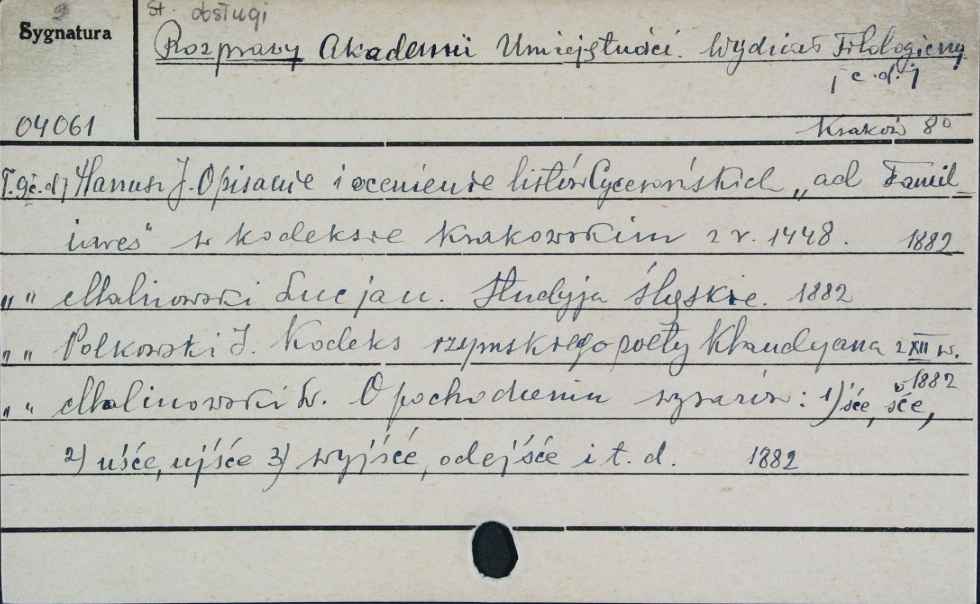 St. obsługi
Sygnatura
Rozprawy Akademii Umiejętności. Wydział Filologiczny
(c.d.)
04061
Kraków 8°
T.9(c.d) Hanusz J. Opisanie i ocenienie listów Cycerońskich „ad Famil-
iares" w kodeksie krakowskim z r. 1448. 1882
„ „ Malinowski Lucjan. Studyja śląskie. 1882
„ „ Polkowski J. Kodeks rzymskiego poety Klaudyana z XII w.
1882
„ „ Malinowski L. O pochodzeniu wyrazów: 1) iśće,
2) uśće, ujśće 3) wyjśćé, odejśće i t. d. 1882